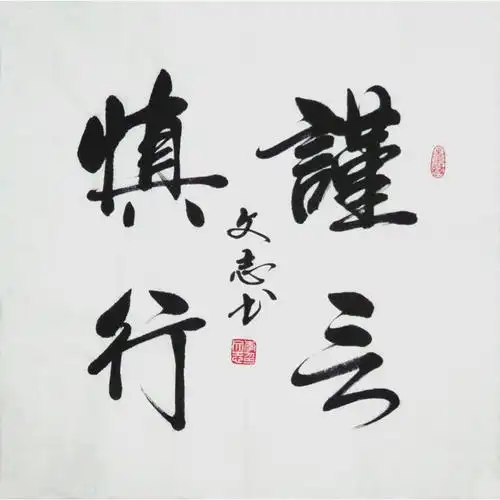 謹言
慎行
文志书